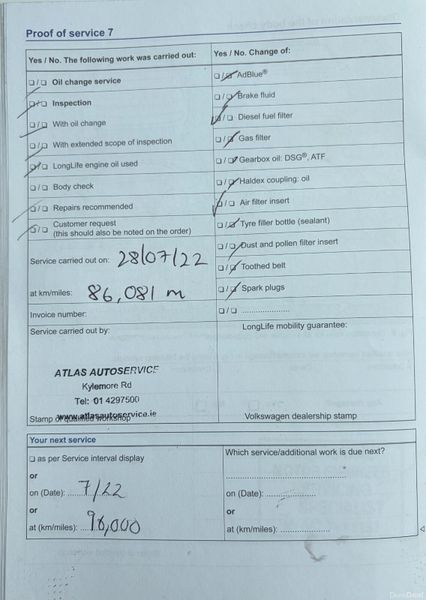 Proof of service 7
Yes / No. The following work was carried out:
Oil change service
Inspection
With oil change
With extended scope of inspection
LongLife engine oil used
Body check
Repairs recommended
Customer request
(this should also be noted on the order)
Service carried out on: 28/07/22
at km/miles: 86,081 m
Invoice number:
Service carried out by:
ATLAS AUTOSERVICE
Kylemore Rd
Tel: 01 4297500
www.atlasautoservice.ie
Stamp of qualified workshop
Yes / No. Change of:
AdBlue®
Brake fluid
Diesel fuel filter
Gas filter
Gearbox oil: DSG®, ATF
Haldex coupling: oil
Air filter insert
Tyre filler bottle (sealant)
Dust and pollen filter insert
Toothed belt
Spark plugs
LongLife mobility guarantee:
Volkswagen dealership stamp
Your next service
as per Service interval display
or
on (Date): 7/22
or
at (km/miles): 96,000
Which service/additional work is due next?
on (Date):
or
at (km/miles):
DoneDeal